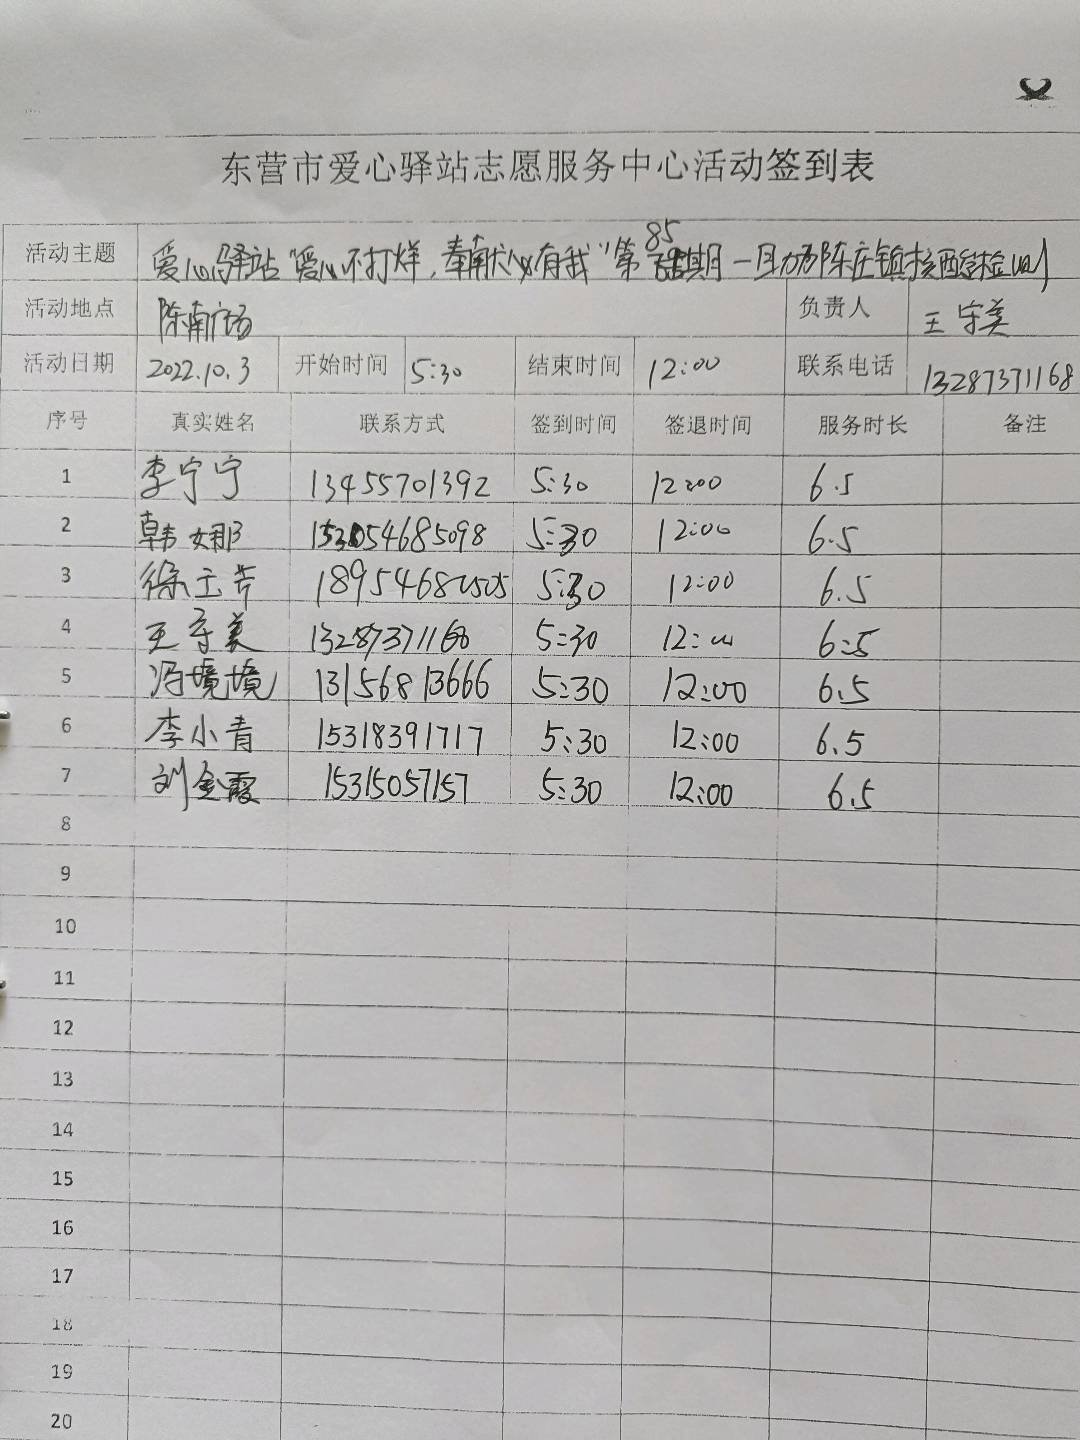 东营市爱心驿站志愿服务中心活动签到表
活动主题 爱心驿站"爱心不打烊,奉献必有我"第85期一助力陈庄镇核酸检测
活动地点 陈南广场 负责人 王守美
活动日期 2022.10.3 开始时间 5:30 结束时间 12:00 联系电话 13287371168
序号 真实姓名 联系方式 签到时间 签退时间 服务时长 备注
1 李宁宁 13455701392 5:30 12:00 6.5
2 韩娜 5:30 12:00 6.5
3 徐玉芳 5:30 12:00 6.5
4 王守美 5:30 12:00 6.5
5 冯境境 13156813666 5:30 12:00 6.5
6 李小青 15318391717 5:30 12:00 6.5
7 刘金霞 15315057157 5:30 12:00 6.5
8
9
10
11
12
13
14
15
16
17
18
19
20